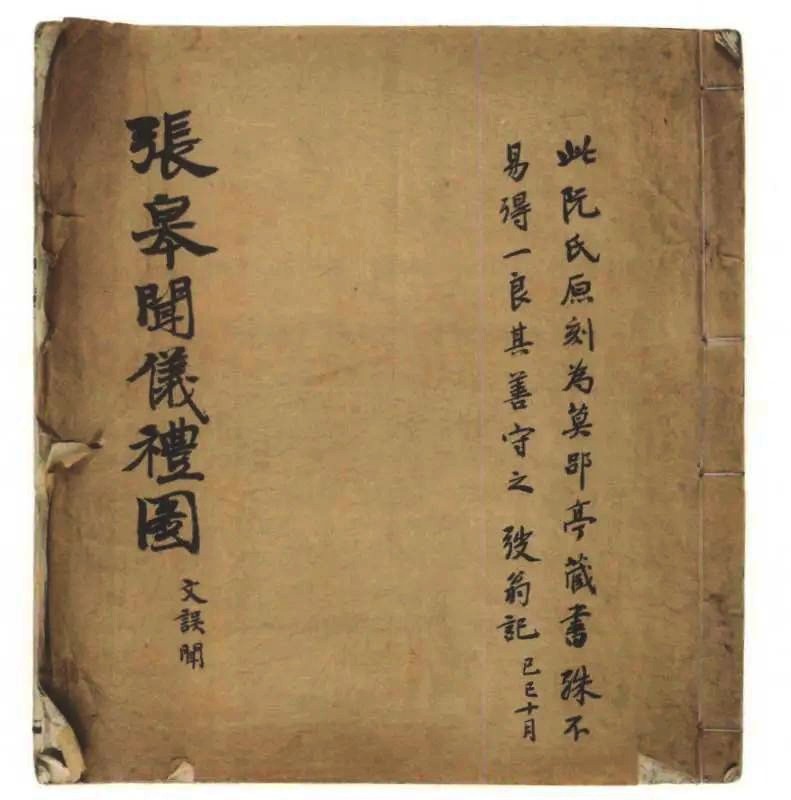 此阮氏原刻為莫郘亭藏書殊不
易得一良其善守之 弢翁記 己巳十月
張皋聞儀禮圖
文誤聞